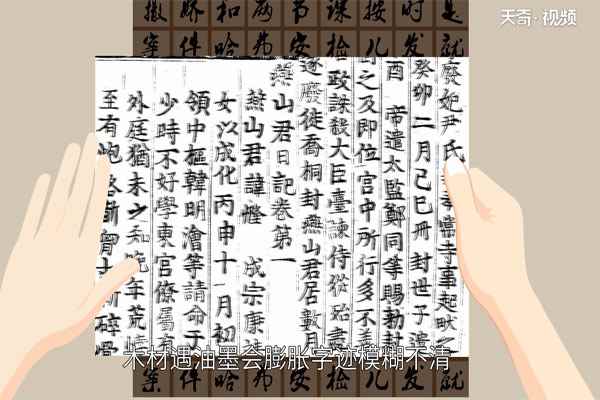 天奇·视频
骄和两节课按时是
案件哈弗安检儿发就
廢妃尹氏
常寺事起畎之
癸卯二月己巳冊封世子遣
酉 帝遣太監鄭同等賜勅封
之及即位宮中所行多不
政誅殺大臣臺諫侍從殆盡
遂廢徙喬桐封燕山君居數月
燕山君日記卷第一
燕山君諱㦕 成宗康靖
女以成化丙申十一月初
領中樞韓明澮等請命于
少時不好學東宮僚屬有
外庭猶未之知晚年荒
至有炮烙斮胷寸斬碎骨
木材遇油墨会膨胀字迹模糊不清
案件哈弗安检儿发就